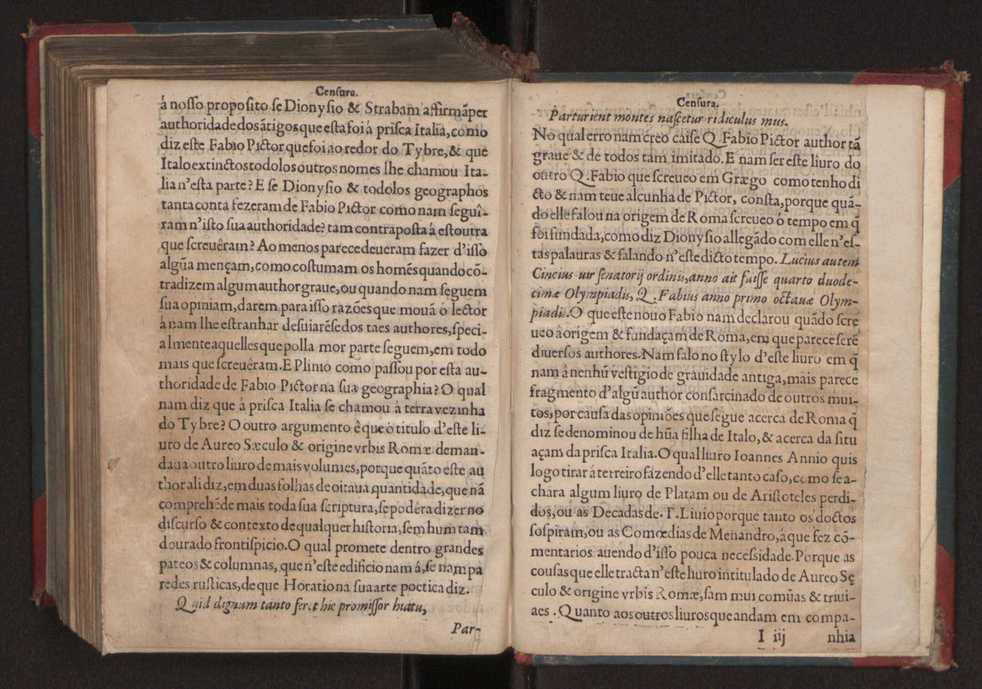 Censura.
á nosso proposito se Dionysio & Strabam affirmãper
authoridade dos ãtigos que esta foi á prisca Italia, como
diz este Fabio Pictor que foi ao redor do Tybre, & que
Italo extinctos todolos outros nomes lhe chamou Ita-
lia n'esta parte? E se Dionysio & todolos geographos
tanta conta fezeram de Fabio Pictor como nam seguî-
ram n'isto sua authoridade? tam contraposta á estoutra
que screuêram? Ao menos parece deueram fazer d'isso
algũa mençam, como costumam os homẽs quando cõ-
tradizem algum author graue, ou quando nam seguem
sua opiniam, darem para isso razões que mouã o lector
à nam lhe estranhar desuiarẽse dos taes authores, speci-
almente aquelles que polla mor parte seguem, em todo
mais que screuêram. E Plinio como passou por esta au-
thoridade de Fabio Pictor na sua geographia? O qual
nam diz que à prisca Italia se chamou à terra vezinha
do Tybre? O outro argumento ê que o titulo d'este li-
uro de Aureo Sæculo & origine vrbis Romæ deman-
daua outro liuro de mais volumes, porque quãto este au
thor ali diz, em duas folhas de oitaua quantidade, que nã
comprehẽde mais toda sua scriptura, se podéra dizer no
discurso & contexto de qualquer historia, sem hum tam
dourado frontispicio. O qual promete dentro grandes
pateos & columnas, que n'este edificio nam á, se nam pa
redes rusticas, de que Horatio na sua arte poetica diz.
Quid dignum tanto feret hic promissor hiatu,
Par-
Censura.
Parturient montes nascetur ridiculus mus.
No qual erro nam creo caisse Q. Fabio Pictor author tã
graue & de todos tam imitado. E nam ser este liuro do
outro Q. Fabio que screueo em Grægo como tenho di
cto & nam teue alcunha de Pictor, consta, porque quã-
do elle falou na origem de Roma screueo ó tempo em q̃
foi fundada, como diz Dionysio allegãdo com elle n'es-
tas palauras & falando n'este dicto tempo. Lucius autem
Cincius vir senatorij ordinis, anno ait fuisse quarto duode-
cimæ Olympiadis, Q. Fabius anno primo octauæ Olym-
piadis. O que este nouo Fabio nam declarou quãdo scre
ueo à origem & fundaçam de Roma, em que parece serẽ
diuersos authores. Nam falo no stylo d'este liuro em q̃
nam â nenhũ vestigio de grauidade antiga, mais parece
fragmento d'algũ author consarcinado de outros mui-
tos, por causa das opiniões que segue acerca de Roma q̃
diz se denominou de hũa filha de Italo, & acerca da situ
açam da prisca Italia. O qual liuro Ioannes Annio quis
logo tirar á terreiro fazendo d'elle tanto caso, como se a-
chara algum liuro de Platam ou de Aristoteles perdi-
dos, ou as Decadas de. T. Liuio porque tanto os doctos
sospiram, ou as Comœdias de Menandro, à que fez cõ-
mentarios auendo d'isso pouca necessidade. Porque as
cousas que elle tracta n'este liuro intitulado de Aureo Sę
culo & origine vrbis Romæ, sam mui comũas & triui-
aes. Quanto aos outros liuros que andam em compa-
I iij nhia